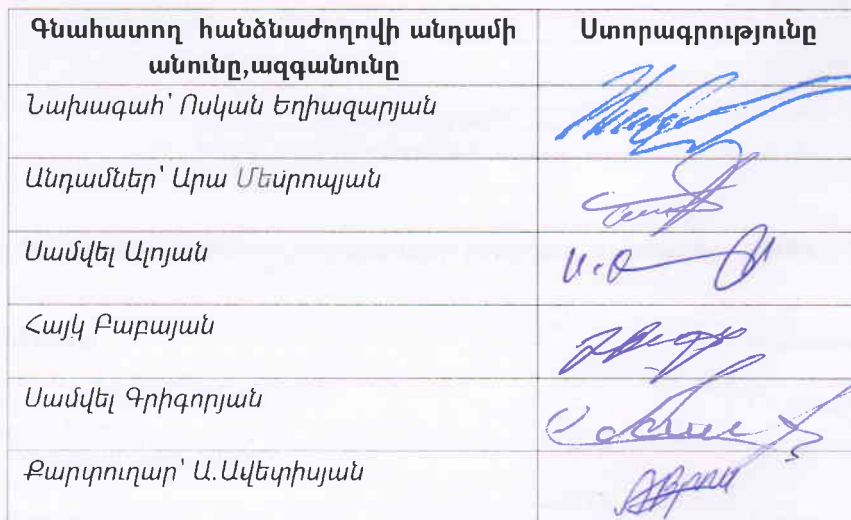 Գնահատող հանձնաժողովի անդամի
անունը,ազգանունը
Ստորագրությունը
Նախագահ՝ Ոսկան Եղիազարյան
Անդամներ՝ Արա Մեսրոպյան
Սամվել Ալոյան
Հայկ Բաբայան
Սամվել Գրիգորյան
Քարտուղար՝ Ա.Ավետիսյան